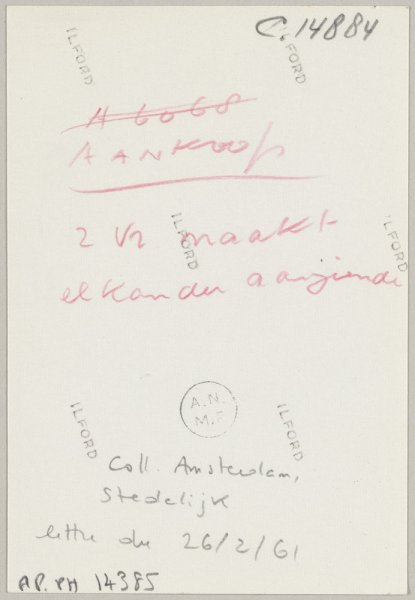 C.14884
ILFORD
ILFORD
A 6068
AANKOOP
2 Vr. naakt
ILFORD
ILFORD
elkander aanziende
A.N.
M.P.
ILFORD
ILFORD
Coll. Amsterdam,
Stedelijk
lettre du 26/2/61
AP. PH 14385